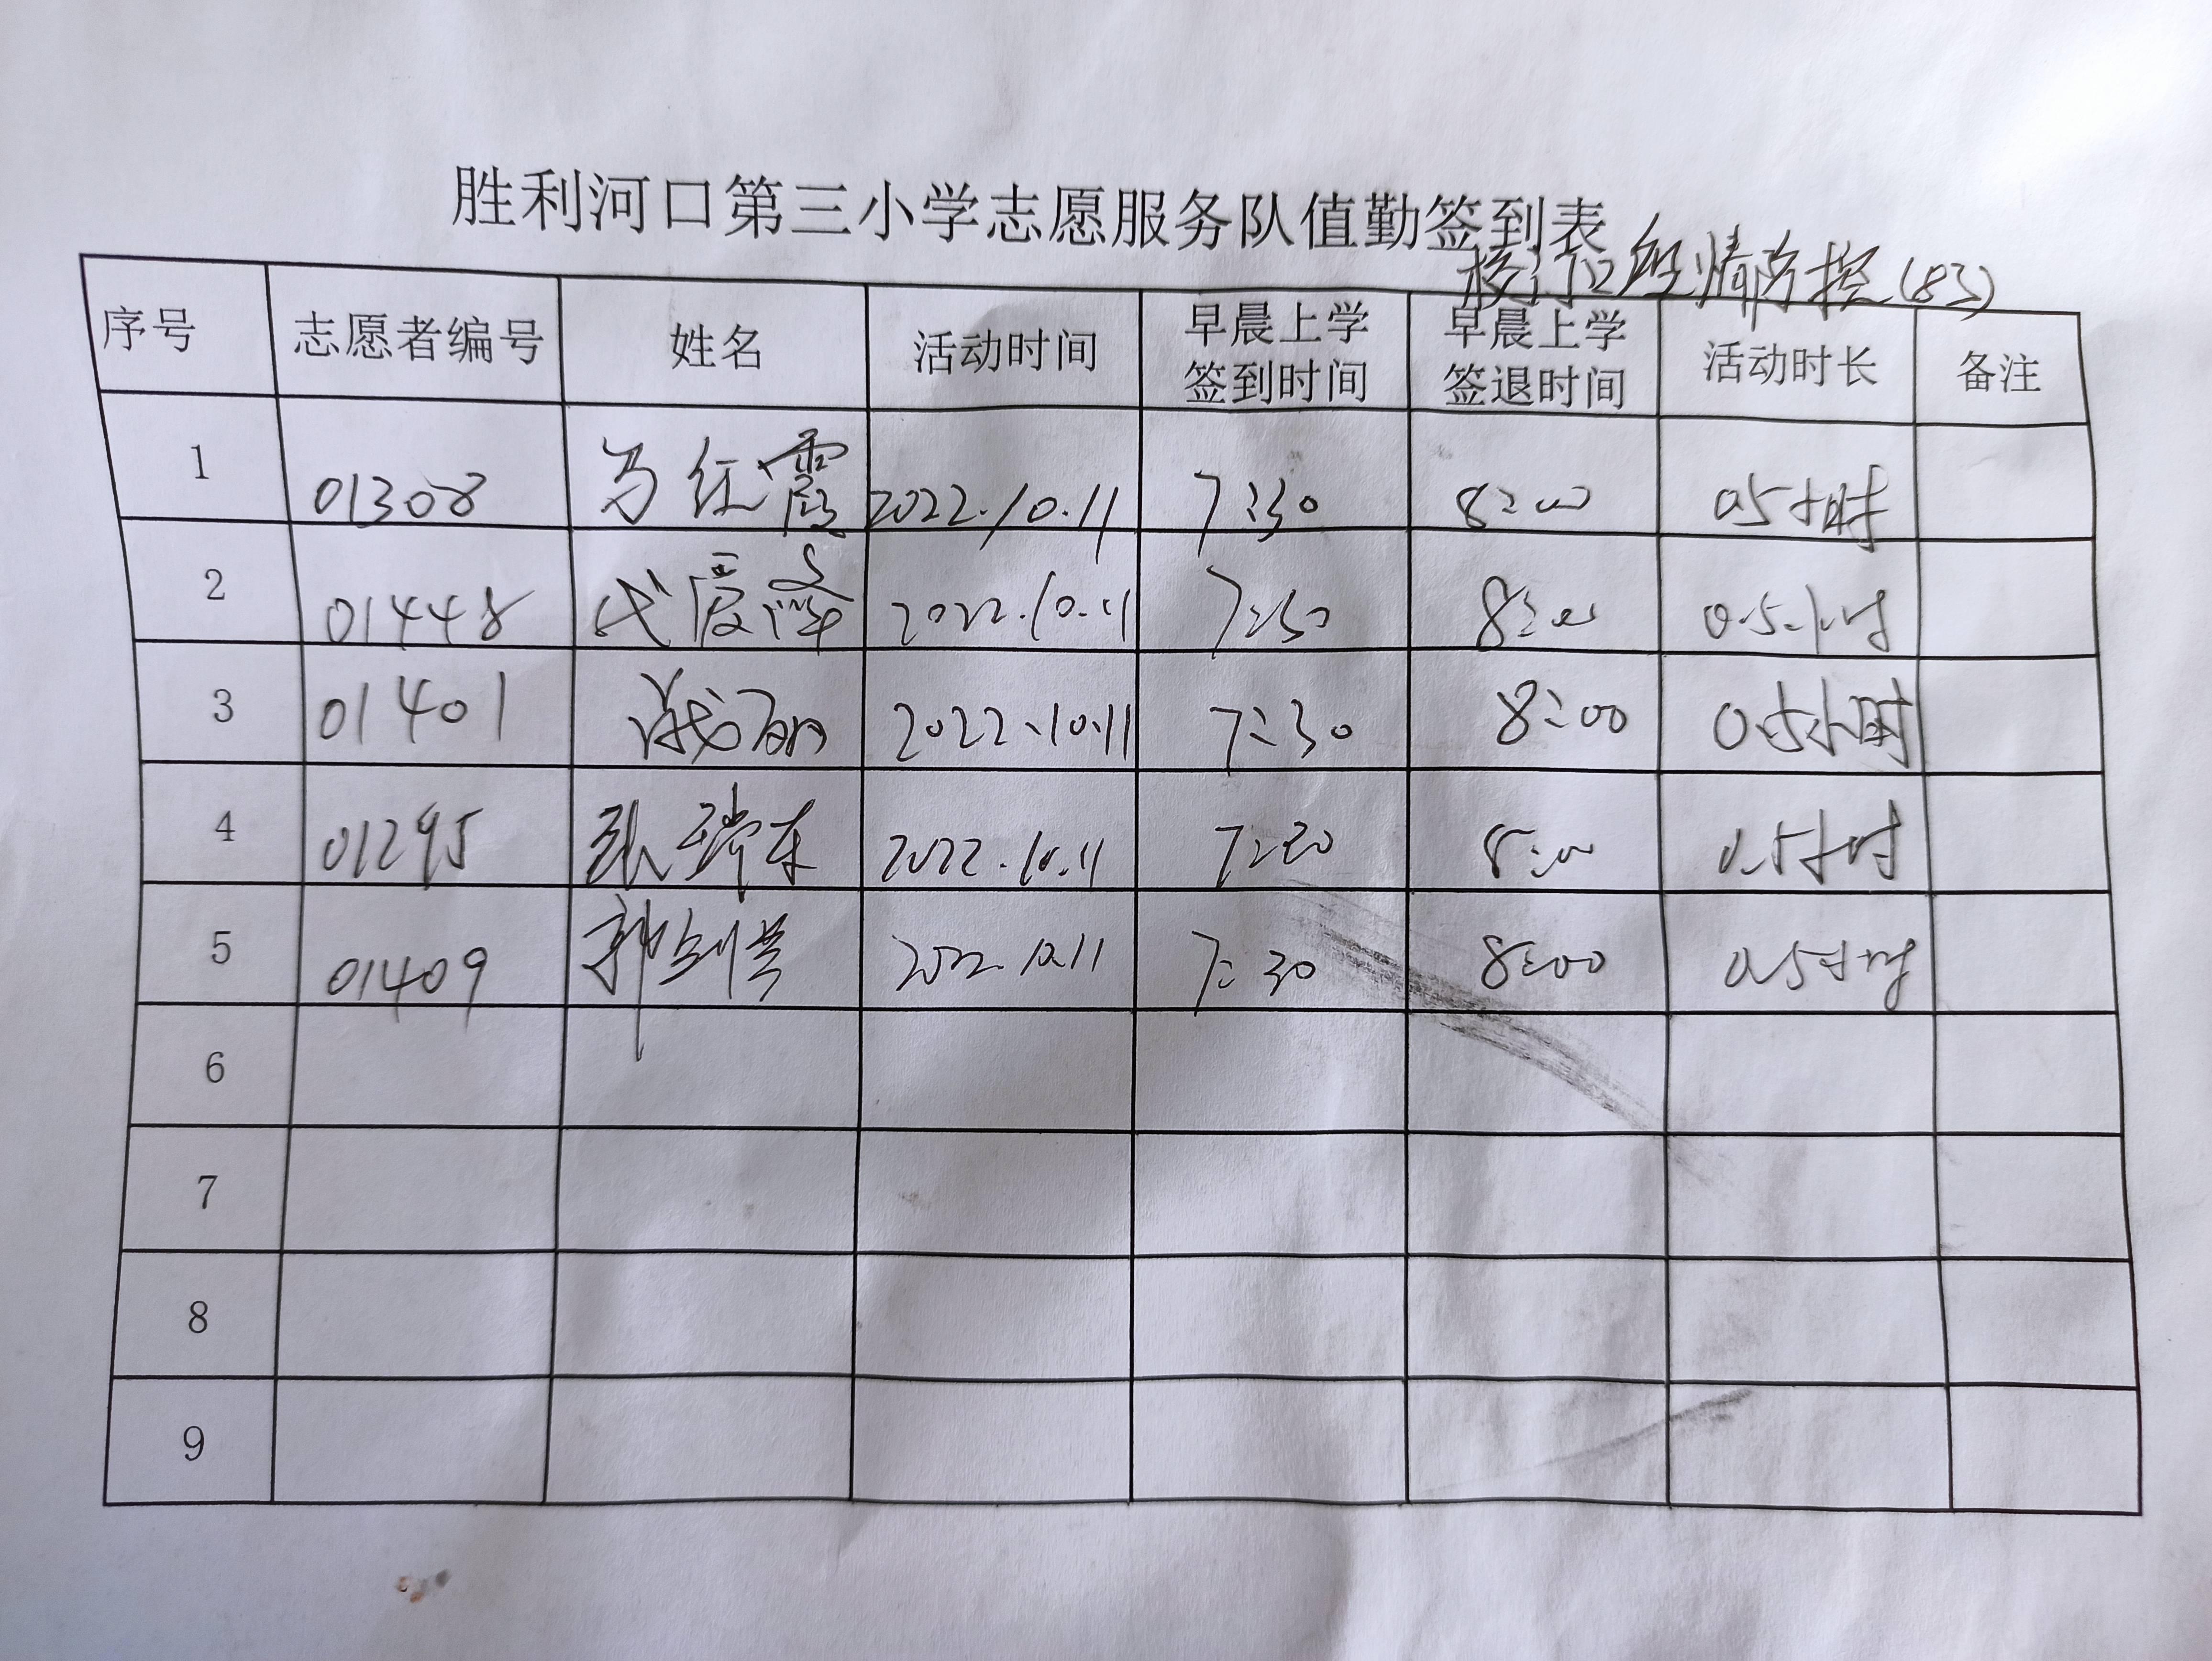 胜利河口第三小学志愿服务队值勤签到表
校门口疫情防控(83)
序号 志愿者编号 姓名 活动时间 早晨上学签到时间 早晨上学签退时间 活动时长 备注
1 01308 马红霞 2022.10.11 7:30 8:00 0.5小时
2 01448 代爱萍 2022.10.11 7:30 8:00 0.5小时
3 01401 2022.10.11 7:30 8:00 0.5小时
4 01295 张瑞东 2022.10.11 7:30 8:00 0.5小时
5 01409 2022.10.11 7:30 8:00 0.5小时
6
7
8
9